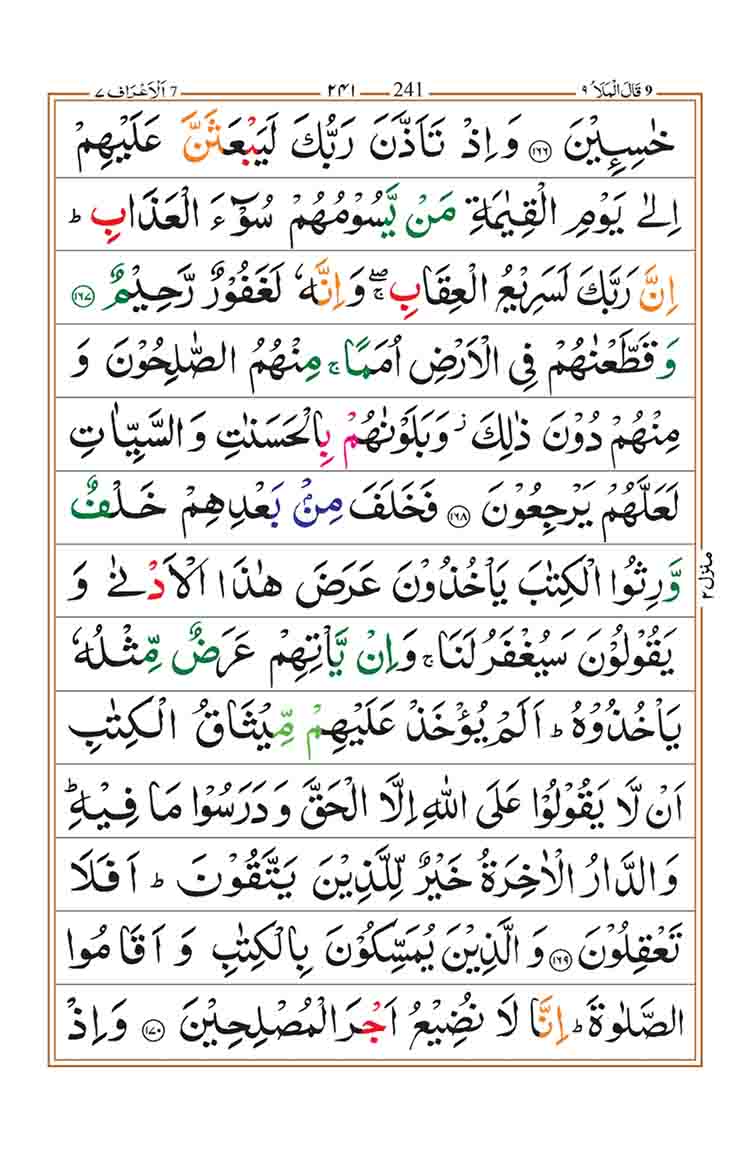 قَالَ الْمَلَاُ ٩ 9 241 ٢٤١ اَلْاَعْرَاف ٧ 7
خٰسِـِٕيْنَ ۝١٦٦ وَاِذْ تَاَذَّنَ رَبُّكَ لَيَبْعَثَنَّ عَلَيْهِمْ
اِلٰى يَوْمِ الْقِيٰمَةِ مَنْ يَّسُوْمُهُمْ سُوْٓءَ الْعَذَابِ ؕ
اِنَّ رَبَّكَ لَسَرِيْعُ الْعِقَابِ ۖۚ وَاِنَّهٗ لَغَفُوْرٌ رَّحِيْمٌ ۝١٦٧
وَقَطَّعْنٰهُمْ فِى الْاَرْضِ اُمَمًا ۚ مِنْهُمُ الصّٰلِحُوْنَ وَ
مِنْهُمْ دُوْنَ ذٰلِكَ ؗ وَبَلَوْنٰهُمْ بِالْحَسَنٰتِ وَالسَّيِّاٰتِ
لَعَلَّهُمْ يَرْجِعُوْنَ ۝١٦٨ فَخَلَفَ مِنْۢ بَعْدِهِمْ خَلْفٌ
وَّرِثُوا الْكِتٰبَ يَاْخُذُوْنَ عَرَضَ هٰذَا الْاَدْنٰى وَ
يَقُوْلُوْنَ سَيُغْفَرُ لَنَا ۚ وَاِنْ يَّاْتِهِمْ عَرَضٌ مِّثْلُهٗ
يَاْخُذُوْهُ ؕ اَلَمْ يُؤْخَذْ عَلَيْهِمْ مِّيْثَاقُ الْكِتٰبِ
اَنْ لَّا يَقُوْلُوْا عَلَى اللّٰهِ اِلَّا الْحَقَّ وَدَرَسُوْا مَا فِيْهِ ؕ
وَالدَّارُ الْاٰخِرَةُ خَيْرٌ لِّلَّذِيْنَ يَتَّقُوْنَ ؕ اَفَلَا
تَعْقِلُوْنَ ۝١٦٩ وَالَّذِيْنَ يُمَسِّكُوْنَ بِالْكِتٰبِ وَاَقَامُوا
الصَّلٰوةَ ؕ اِنَّا لَا نُضِيْعُ اَجْرَ الْمُصْلِحِيْنَ ۝١٧٠ وَاِذْ
منزل ٢